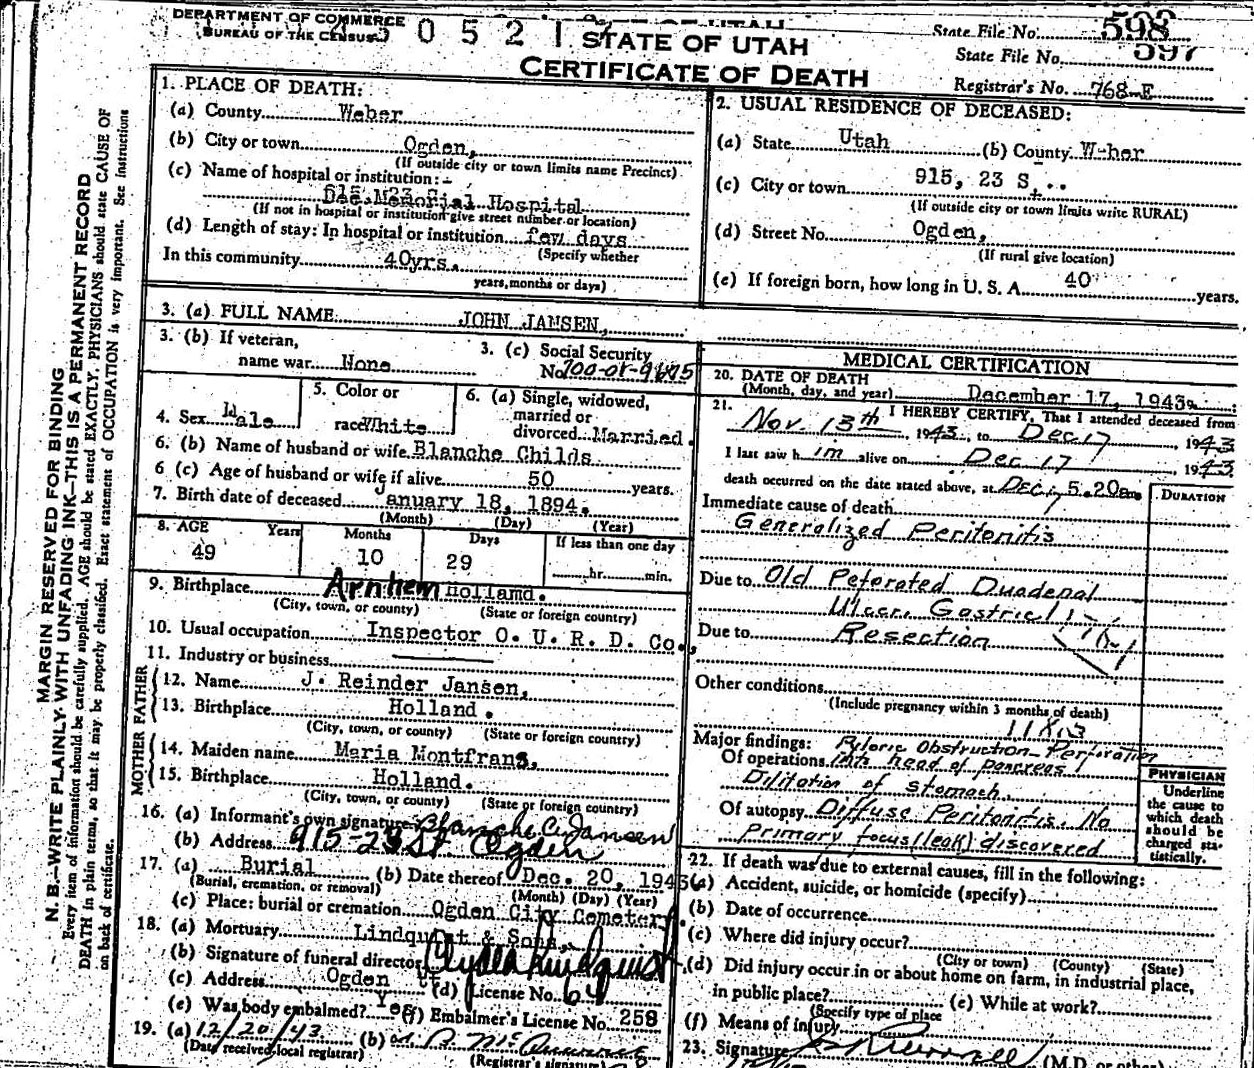 DEPARTMENT OF COMMERCE
BUREAU OF THE CENSUS
0 5 2 1
STATE OF UTAH
CERTIFICATE OF DEATH
State File No. 598
State File No. 597
Registrar's No. 768-E
MARGIN RESERVED FOR BINDING
N. B.—WRITE PLAINLY, WITH UNFADING INK—THIS IS A PERMANENT RECORD
Every item of information should be carefully supplied. AGE should be stated EXACTLY. PHYSICIANS should state CAUSE OF
DEATH in plain terms, so that it may be properly classified. Exact statement of OCCUPATION is very important. See instructions
on back of certificate.
1. PLACE OF DEATH:
(a) County Weber
(b) City or town Ogden,
(If outside city or town limits name Precinct)
(c) Name of hospital or institution:
Dee Memorial Hospital
(If not in hospital or institution give street number or location)
(d) Length of stay: In hospital or institution few days
(Specify whether
In this community 40yrs.
years, months or days)
2. USUAL RESIDENCE OF DECEASED:
(a) State Utah (b) County W-ber
(c) City or town 915, 23 S
(If outside city or town limits write RURAL)
(d) Street No. Ogden,
(If rural give location)
(e) If foreign born, how long in U. S. A. 40 years.
3. (a) FULL NAME JOHN JANSEN,
3. (b) If veteran,
name war None
3. (c) Social Security
No.
4. Sex Male
5. Color or
race White
6. (a) Single, widowed,
married or
divorced Married.
6. (b) Name of husband or wife Blanche Childs
6 (c) Age of husband or wife if alive 50 years.
7. Birth date of deceased January 18, 1894.
(Month) (Day) (Year)
8. AGE Years Months Days If less than one day
49 10 29 hr. min.
9. Birthplace Arnhem Holland.
(City, town, or county) (State or foreign country)
10. Usual occupation Inspector O. U. R. D. Co.,
11. Industry or business
FATHER
12. Name J. Reinder Jansen,
13. Birthplace Holland.
(City, town, or county) (State or foreign country)
MOTHER
14. Maiden name Maria Montfrans,
15. Birthplace Holland.
(City, town, or county) (State or foreign country)
16. (a) Informant's own signature Blanche C. Jansen
(b) Address 915-23 St. Ogden
17. (a) Burial (b) Date thereof Dec. 20, 194
(Burial, cremation, or removal) (Month) (Day) (Year)
(c) Place: burial or cremation Ogden City Cemetery.
18. (a) Mortuary Lindquist & Sons,
(b) Signature of funeral director Clyde Lindquist
(c) Address Ogden Ut (d) License No.
(e) Was body embalmed? Yes (f) Embalmer's License No. 258
19. (a) 12/20/43 (b)
(Date received local registrar) (Registrar's signature)
MEDICAL CERTIFICATION
20. DATE OF DEATH
(Month, day, and year) December 17, 1943.
21. I HEREBY CERTIFY, That I attended deceased from
Nov. 13th, 1943, to Dec 17, 1943
I last saw him alive on Dec 17, 1943
death occurred on the date stated above, at Dec 17 5.20am
DURATION
Immediate cause of death
Generalized Peritonitis
Due to Old Peforated Duodenal
Ulcer. Gastric
Due to Resection
Other conditions
(Include pregnancy within 3 months of death)
Major findings: Pyloric Obstruction - Perforation
Of operations into head of pancreas
Dilitation of stomach.
Of autopsy Diffuse Peritonitis. No
Primary focus (leak) discovered
PHYSICIAN
Underline
the cause to
which death
should be
charged sta-
tistically.
22. If death was due to external causes, fill in the following:
(a) Accident, suicide, or homicide (specify)
(b) Date of occurrence
(c) Where did injury occur?
(City or town) (County) (State)
(d) Did injury occur in or about home on farm, in industrial place,
in public place? (e) While at work?
(Specify type of place
(f) Means of injury
23. Signature (M.D. or other)